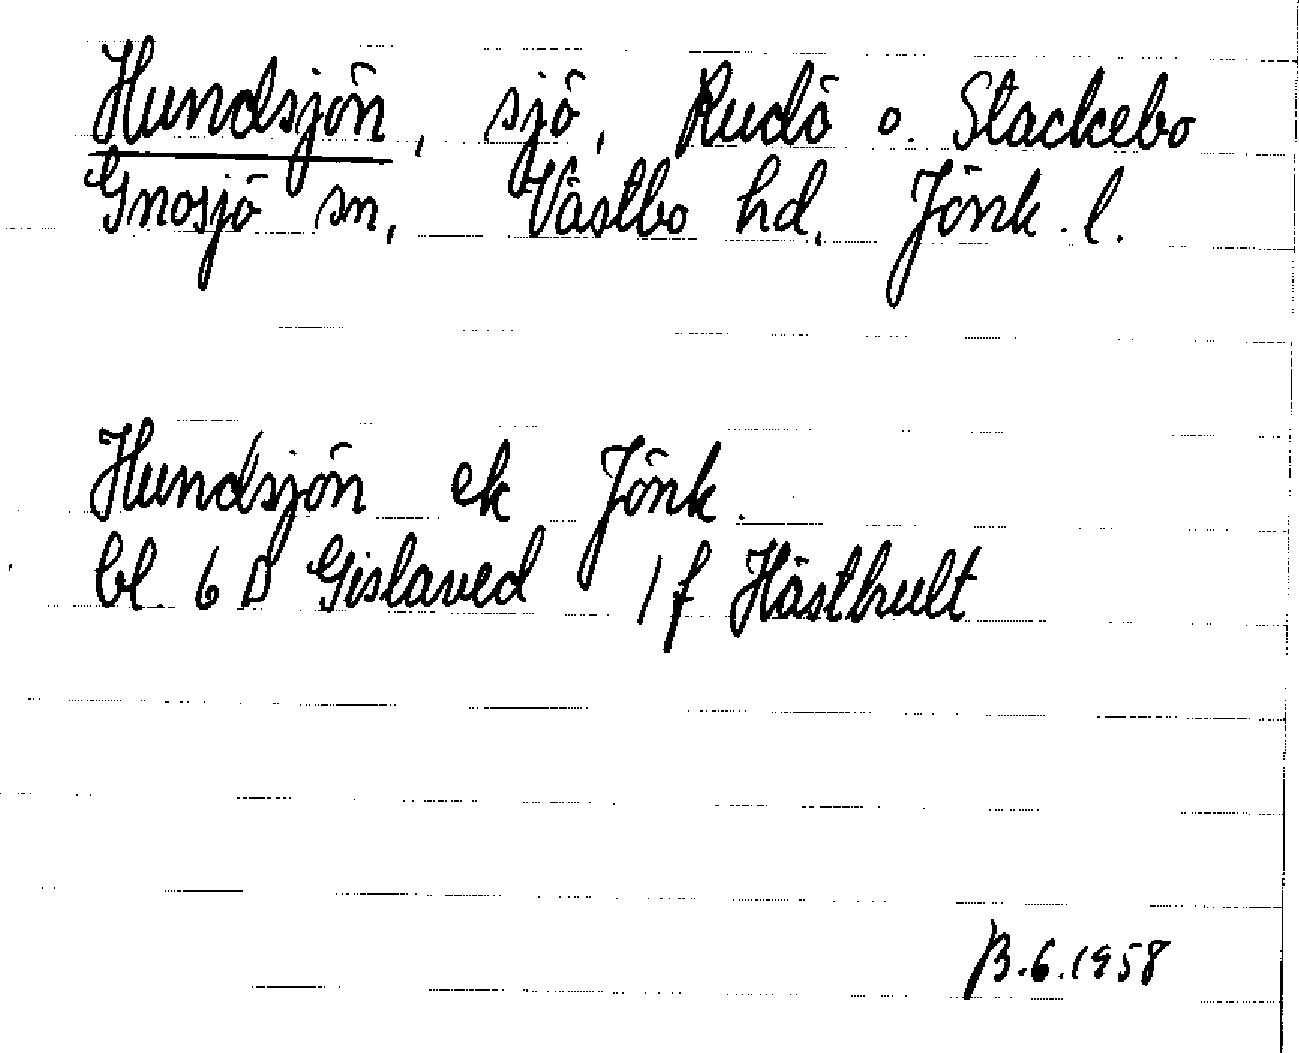 Hundsjön, sjö, Rudö o. Stackebo
Gnosjö sn, Västbo hd, Jönk. l.
Hundsjön ek Jönk.
bl. 6 D Gislaved 1 f Hästhult
13.6.1958